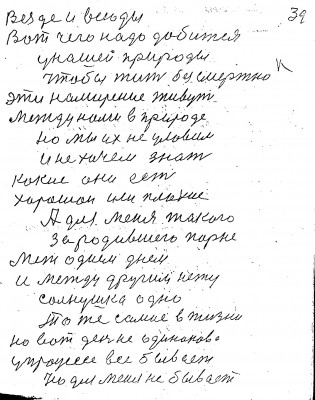 Везде и всюды 39
Вот чего надо добится
у нашей природы
Чтобы жит бысмертно
Эти намирение живут
Между нами в природе
но мы их не уловим
и не хочем знат
какие они ест
хорошои или плохие
А для меня такого
Зародившего парне
Мет одним днем
и между другим нету
солнушка одно
То же самое в жизни
но вот ден не одинаково
упроцессе все бывает
Но для меня не бывает